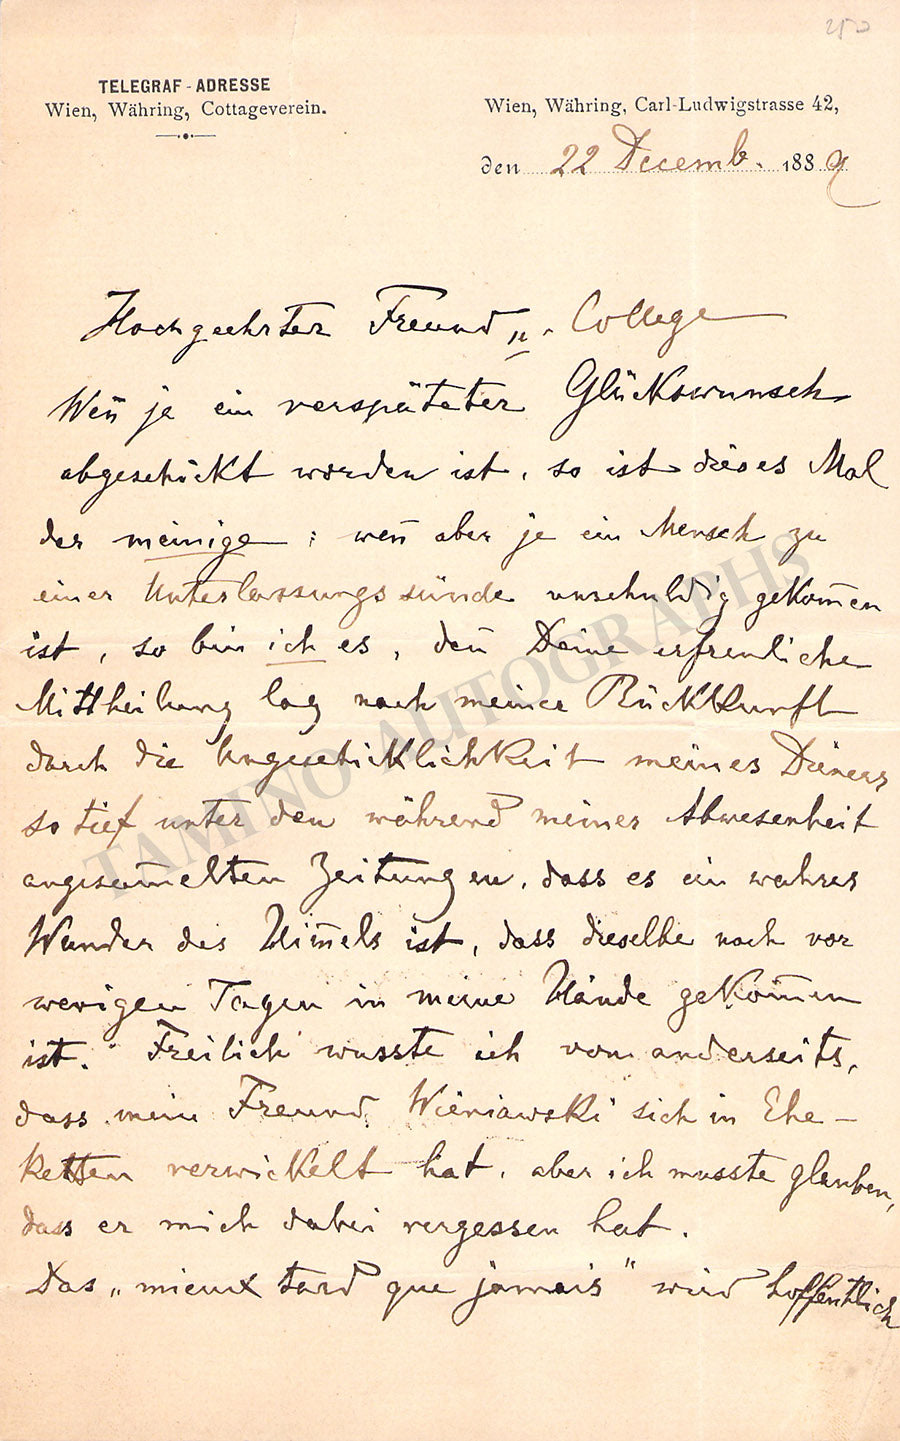 250
TELEGRAF-ADRESSE
Wien, Währing, Cottageverein.
Wien, Währing, Carl-Ludwigstrasse 42,
den 22 Decemb. 1889
Hochgeehrter Freund u. College
Wen̄ je ein verspäteter Glückswunsch
abgeschickt worden ist, so ist dieses Mal
der meinige; wen̄ aber je ein Mensch zu
einer Unterlassungssünde unschuldig gekom̄en
ist, so bin ich es, den̄ Deine erfreuliche
Mittheilung lag nach meiner Rückkunft
durch die Ungeschicklichkeit meines Dieners
so tief unter den während meiner Abwesenheit
angesam̄elten Zeitungen, dass es ein wahres
Wunder des Him̄els ist, dass dieselbe noch vor
wenigen Tagen in meine Hände gekom̄en
ist. Freilich wusste ich von anderseits,
dass mein Freund Wieniawski sich in Ehe-
ketten verwickelt hat, aber ich musste glauben,
dass er mich dabei vergessen hat.
Das „mieux tard que jamais" wird hoffentlich
TAMINO AUTOGRAPHS